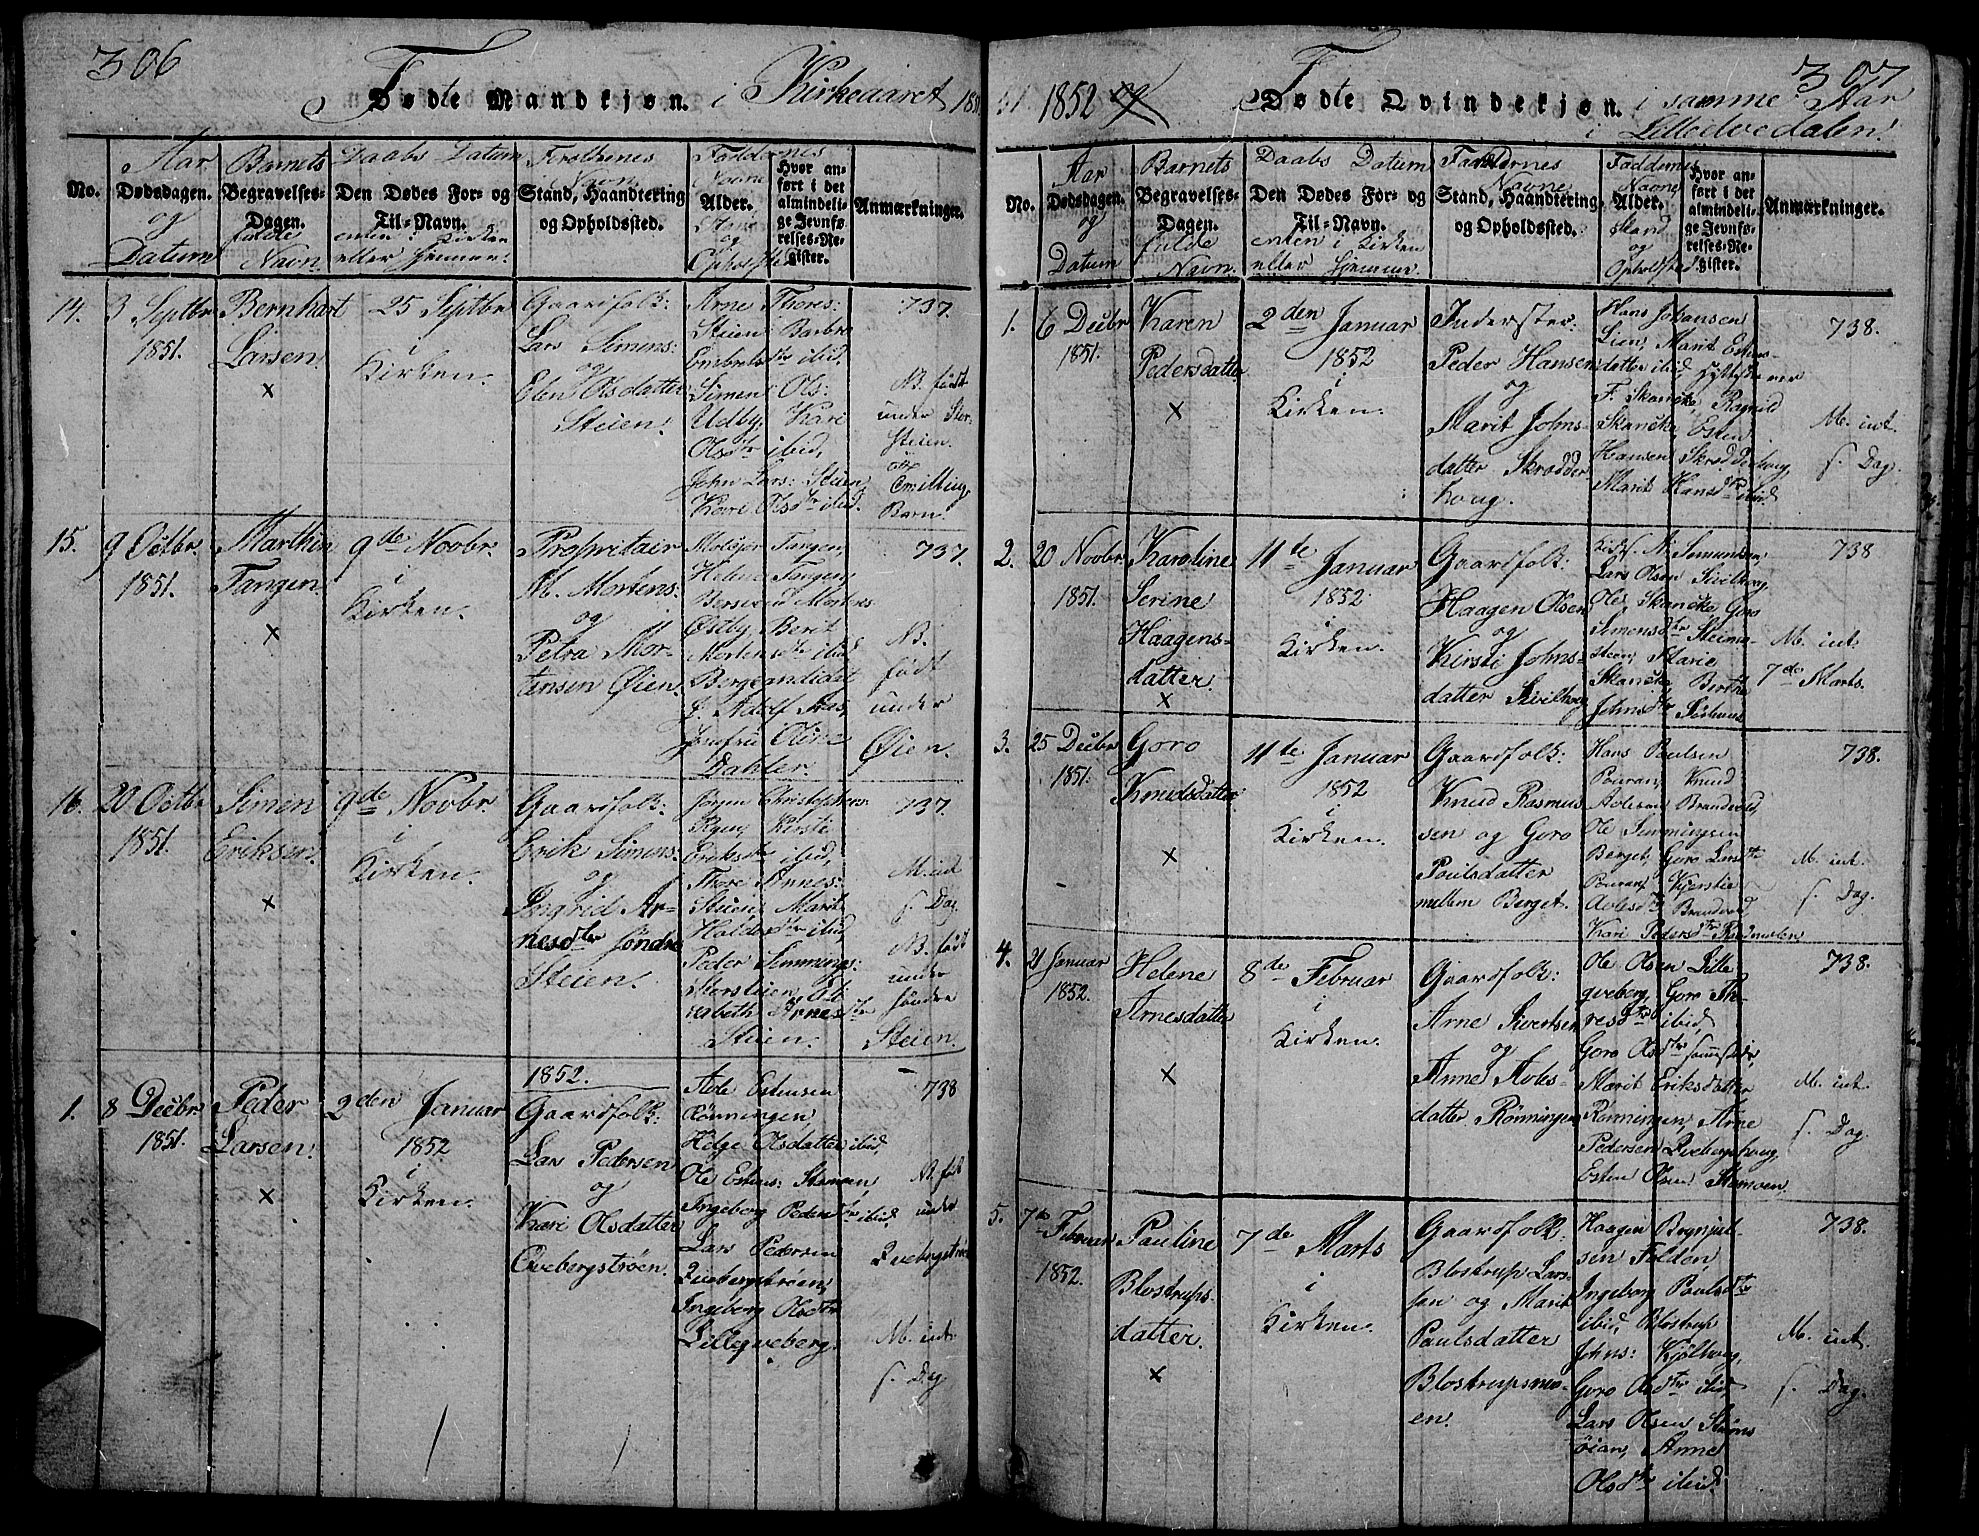 306
Fødte Mandkjøn. i Kirkeaaret 18
No.
Aar
Dødsdagen.
og
Datum
Barnets
Begravelses-
Dagen.
fulde
Navn.
Daabs Datum
Den Dødes For- og
Til-Navn.
enten i Kirken
eller hjemme.
Forældrenes
Navn
Stand, Haandtering
og Opholdssted.
Faddernes
Navne
Alder.
Stand
og
Opholdsted
Hvor an-
ført i det
almindeli-
ge Jevnfø-
relses-Re-
gister.
Anmærkninger.
14.
3 Septbr
1851.
Bernhart
Larsen.
×
25 Septbr
i
Kirken.
Gaardfolk:
Lars Simens:
og
Elen Olsdatter
Steien.
Arne Thores:
Steien Barbro
ibid.
Simen Ols:
Udby, Kari
Olsdtr ibid,
John Lars: Steien,
Kari Olsdtr ibid.
737.
NB. født
under Stor-
steien.
Barn.
15.
9 Octbr.
1851.
Marthin
Tangen.
×
9de Novbr.
i
Kirken.
Propritair
M. Mortens:
og
Petra Mor-
tensen Øien.
Tangen,
Helene Tangen,
Østby, Berit
Mortensdtr ibid
Bergcandidat
Adolf
Oline
Dahler.
737.
NB.
født
under
Øien.
16.
20 Octbr
1851.
Simen
Eriksen.
×
9de Novbr.
i
Kirken.
Gaardfolk:
Erik Simens:
og
Ingrid Ar-
nesdtr søndre
Steien.
Jørgen Christophers:
Kirsti
Eriksdtr ibid,
Thore Annes:
Steien, Marit
Haldorsdtr ibid,
Peder Simmings:
Storsteien, Eli-
sabeth Arnesdtr
Steien.
737.
M. int.
s. Dag.
NB. født
under
søndre
Steien.
1852.
1.
8 Decbr
1851.
Peder
Larsen.
×
2den Januar
1852
i
Kirken.
Gaardfolk:
Lars Pedersen
og
Kari Olsdatter
Qvebergstrøen.
Estensen
Rønningen,
Helge Olsdatter ibid,
Ole Estens: Stamoen,
Ingeborg Pedersdtr ibid,
Lars Pedersen
Qvebergstrøen,
Ingeborg Olsdtr
Lilleqveberg.
738
NB. født
under
Qvebergstrøen
M. int.
s. Dag
307
51 1852
Fødte Qvindekjøn. i samme Aar
i Lilleelvedalen.
No.
Aar
Dødsdagen.
og
Datum
Barnets
Begravelses-
Dagen.
fulde
Navn.
Daabs Datum
Den Dødes For- og
Til-Navn.
enten i Kirken
eller hjemme.
Navne
Stand, Haandtering
og Opholdssted.
Faddernes
Navne
Alder.
Stand
og
Opholdsted
Hvor an-
ført i det
almindeli-
ge Jevnfø-
relses-Re-
gister.
Anmærkninger.
1.
6 Decbr
1851.
Karen
Pedersdatter
×
2den Januar
1852
i
Kirken.
Inderster:
Peder Hansen
og
Marit Johns-
datter Skrædder-
houg.
Hans Johansen
Lien, Marit Estens-
datter ibid,
F. Skancke Ragnild
Skancke, Esten
Hansen Skrædderhoug,
Marit Hansdtr ibid
738.
M. int.
s. Dag.
2.
20 Novbr
1851.
Karoline
Serine
Haagens-
datter.
×
11te Januar
1852
i
Kirken.
Gaardfolk:
Haagen Olsen
og
Kirsti Johns-
datter Sivilhoug
Kirks. N. Simensen,
Lars Olsen Sivilhoug,
Ole Skancke Goro
Simensdtr Steimo-
Marie
Skancke, Berthe
Johnsdtr
738
M. int.
7de Marts.
3.
25 Decbr
1851.
Goro
Knudsdatter
×
11te Januar
1852
i
Kirken.
Gaardfolk:
Knud Rasmus
sen og Goro
Poulsdatter
mellem Berget.
Hans Poulsen
Knud
Brandvold,
Ole Simmingsen
Berget, Goro Larsdtr
Kjerstie
Brandvold
Kari Pedersdtr
738.
M. int.
s. Dag.
4.
21 Januar
1852.
Helene
Arnesdatter
×
8de Februar
i
Kirken.
Gaardfolk:
Arne Sivertsen
og
Anne Aales-
datter Rønningen
Ole Olsen Lille
qveberg, Goro Th-
resdtr ibid,
Goro Olsdtr sammesteds,
Marit Eriksdatter
Rønningen, Arne
Pedersen Qveberghoug,
Esten Olsen Stamoen.
738.
M. int.
s. Dag.
5.
7de Februar
1852.
Pauline
Blostrups-
datter.
×
7de Marts
i
Kirken.
Gaardfolk.
Blostrup Lars-
sen og Marit
Paulsdatter
Blostrupsmo-
en.
Haagen
sen Folden
Ingeborg Poulsdtr
ibid, Blostrup
Johns: Kjølhoug,
Goro Olsdtr ibid
Lars Olsen
Anne
Olsdtr ibid.
738.
M. int.
s. Dag.